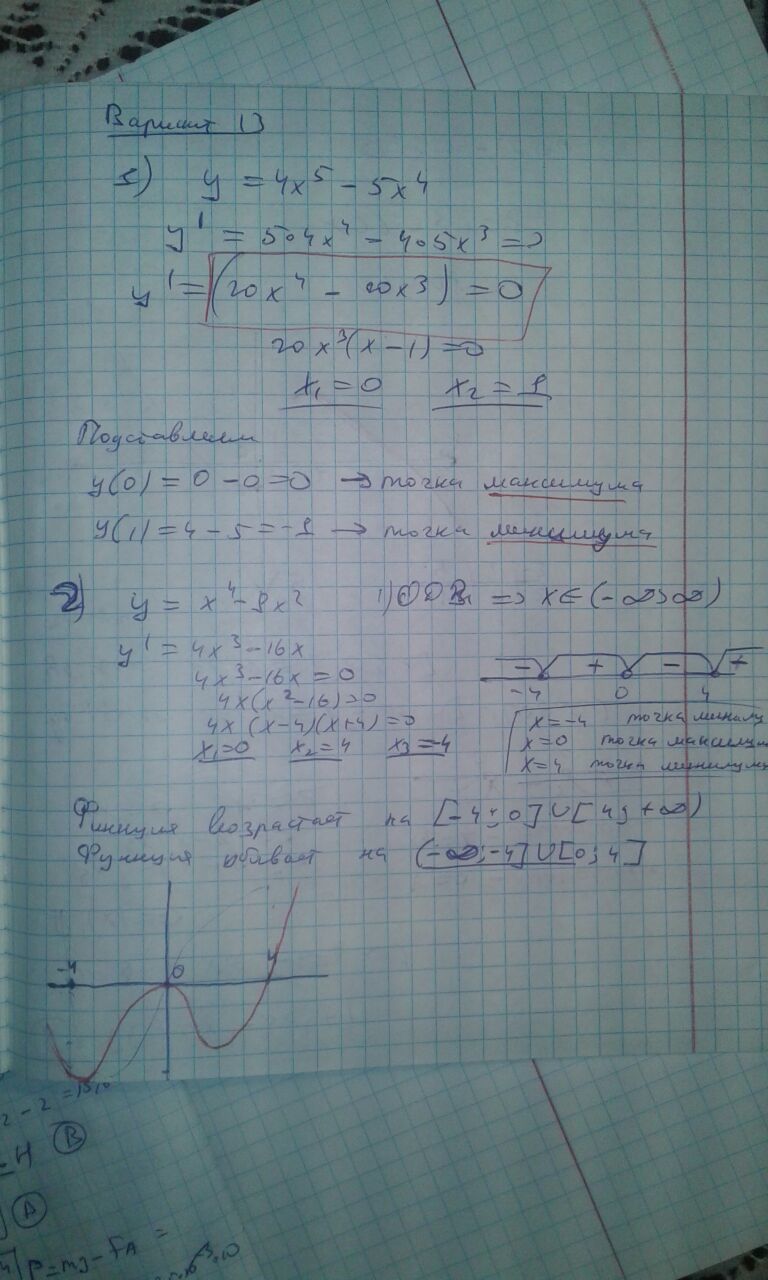 Вариант 13
1) y = 4x⁵ - 5x⁴
y' = 5∘4x⁴ - 4∘5x³ =>
y' = (20x⁴ - 20x³) = 0
20x³(x-1) = 0
x₁ = 0 x₂ = 1
Подставляем
y(0) = 0 - 0 = 0 → точка максимума
y(1) = 4 - 5 = -1 → точка минимума
2) y = x⁴ - 8x² 1) ОДЗ => x ∈ (-∞; ∞)
y' = 4x³ - 16x
4x³ - 16x = 0
4x(x² - 16) = 0
4x(x-4)(x+4) = 0
x₁=0 x₂=4 x₃=-4
- + - +
-4 0 4
x=-4 точка
x=0 точка
x=4 точка
Функция возрастает на [-4; 0] ∪ [4; +∞)
Функция убывает на (-∞; -4] ∪ [0; 4]
-4 0 4
B
A
P = mg - FA =